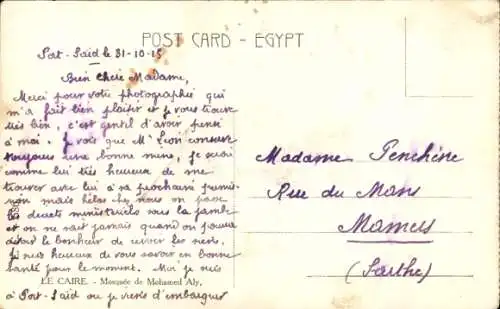 POST CARD - EGYPT
Port-Saïd le 31-10-15
Bien Chère Madame,
Merci pour votre photographie qui
m'a fait bien plaisir et je vous trouve
très bien, c'est gentil d'avoir pensé
à moi. Je vois que Mr Léon conserve
toujours une bonne mine, je serai
comme lui très heureux de me
trouver avec lui à sa prochaine permis-
sion mais hélas chez nous on passe
les décrets ministériels sous la jambe
et on ne sait jamais quand on pourra
avoir le bonheur de revoir les siens.
Je suis heureux de vous savoir en bonne
santé pour le moment. Moi je suis
LE CAIRE. - Mosquée de Mohamed Aly.
à Port-Saïd où je viens d'embarquer
Madame Penchène
Rue du Mans
Mamers
(Sarthe)